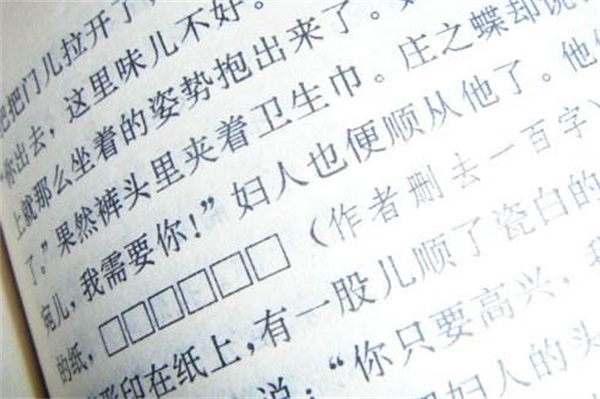 把把门儿拉开了，
“你出去，这里味儿不好。
上就那么坐着的姿势抱出来了。
了。”果然裤头里夹着卫生巾。庄之蝶却说
宛儿，我需要你！”妇人也便顺从他了。他
的纸，□□□□□□（作者删去一百字）
印在纸上，有一股儿顺了瓷白的
说：“你只要高兴，我
妇人的头